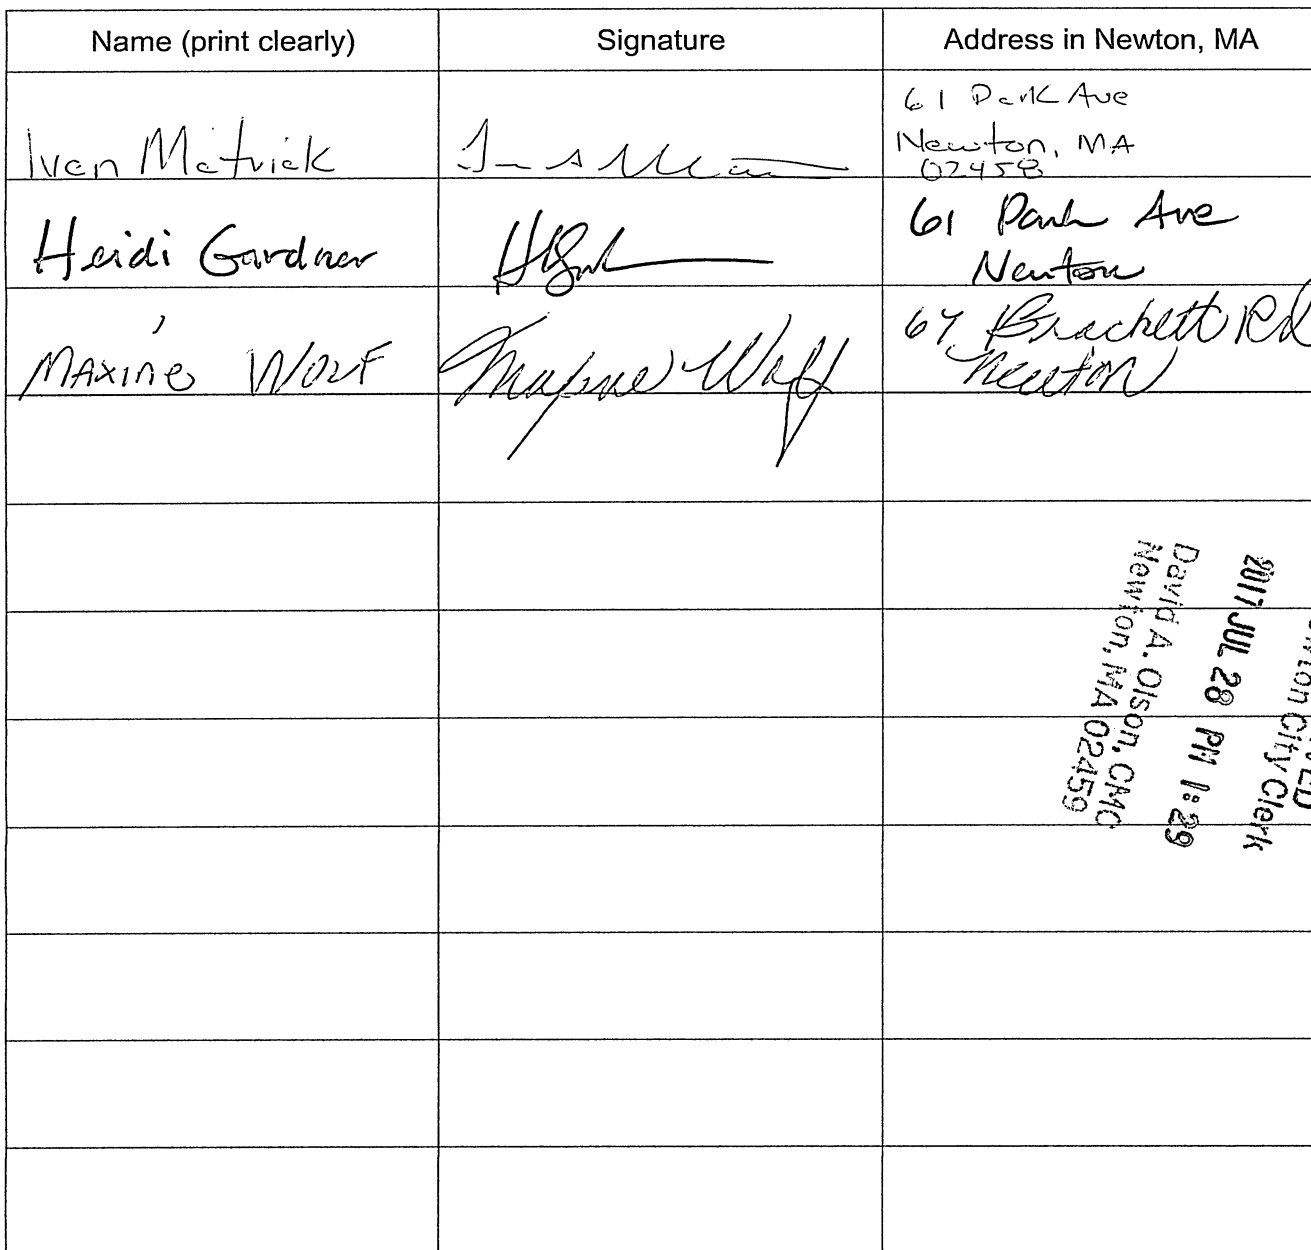 Name (print clearly) Signature Address in Newton, MA
61 Park Ave
Ivan Matrick Newton, MA
02458
Heidi Gardner 61 Park Ave
Newton
Maxine Wolf Maxine Wolf 67 Brackett Rd
Newton
Newton City Clerk
2017 JUL 28 PM 1:29
David A. Olson, CMC
Newton, MA 02459